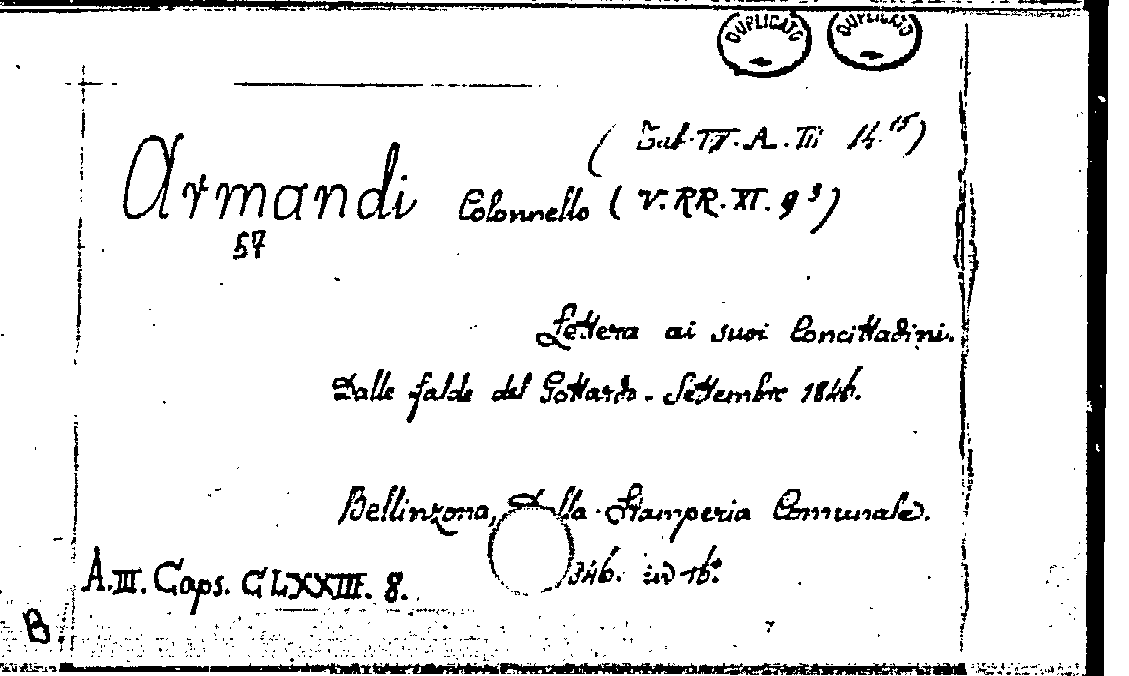 DUPLICATO DUPLICATO
(Gab. IX. A. III 14 15)
Armandi Colonnello (V. RR. XI. 9 3)
57
Lettera ai suoi Concittadini.
Dalle falde del Gottardo. Settembre 1846.
Bellinzona, Dalla Stamperia Comunale.
846. in 16°.
A. III. Caps. CLXXIII. 8.
B.